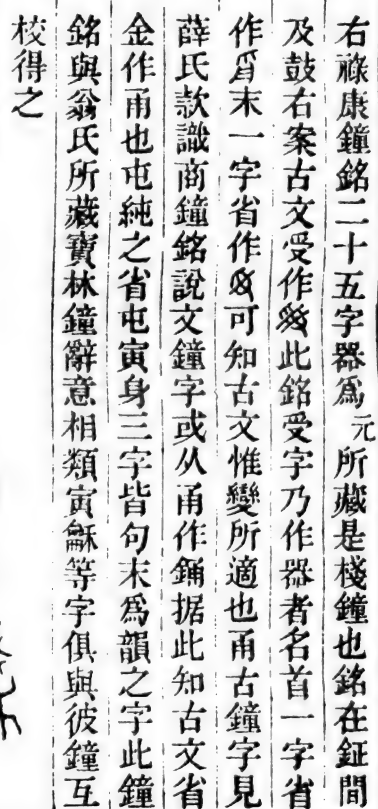 右祿康鐘銘二十五字器爲元所藏是棧鐘也銘在鉦間
及鼓右案古文受作此銘受字乃作器者名首一字省
作末一字省作可知古文惟變所適也甬古鐘字見
薛氏款識商鐘銘說文鐘字或从甬作銿据此知古文省
金作甬也屯純之省屯寅身三字皆句末爲韻之字此鐘
銘與翁氏所藏寶林鐘辭意相類寅龢等字俱與彼鐘互
校得之